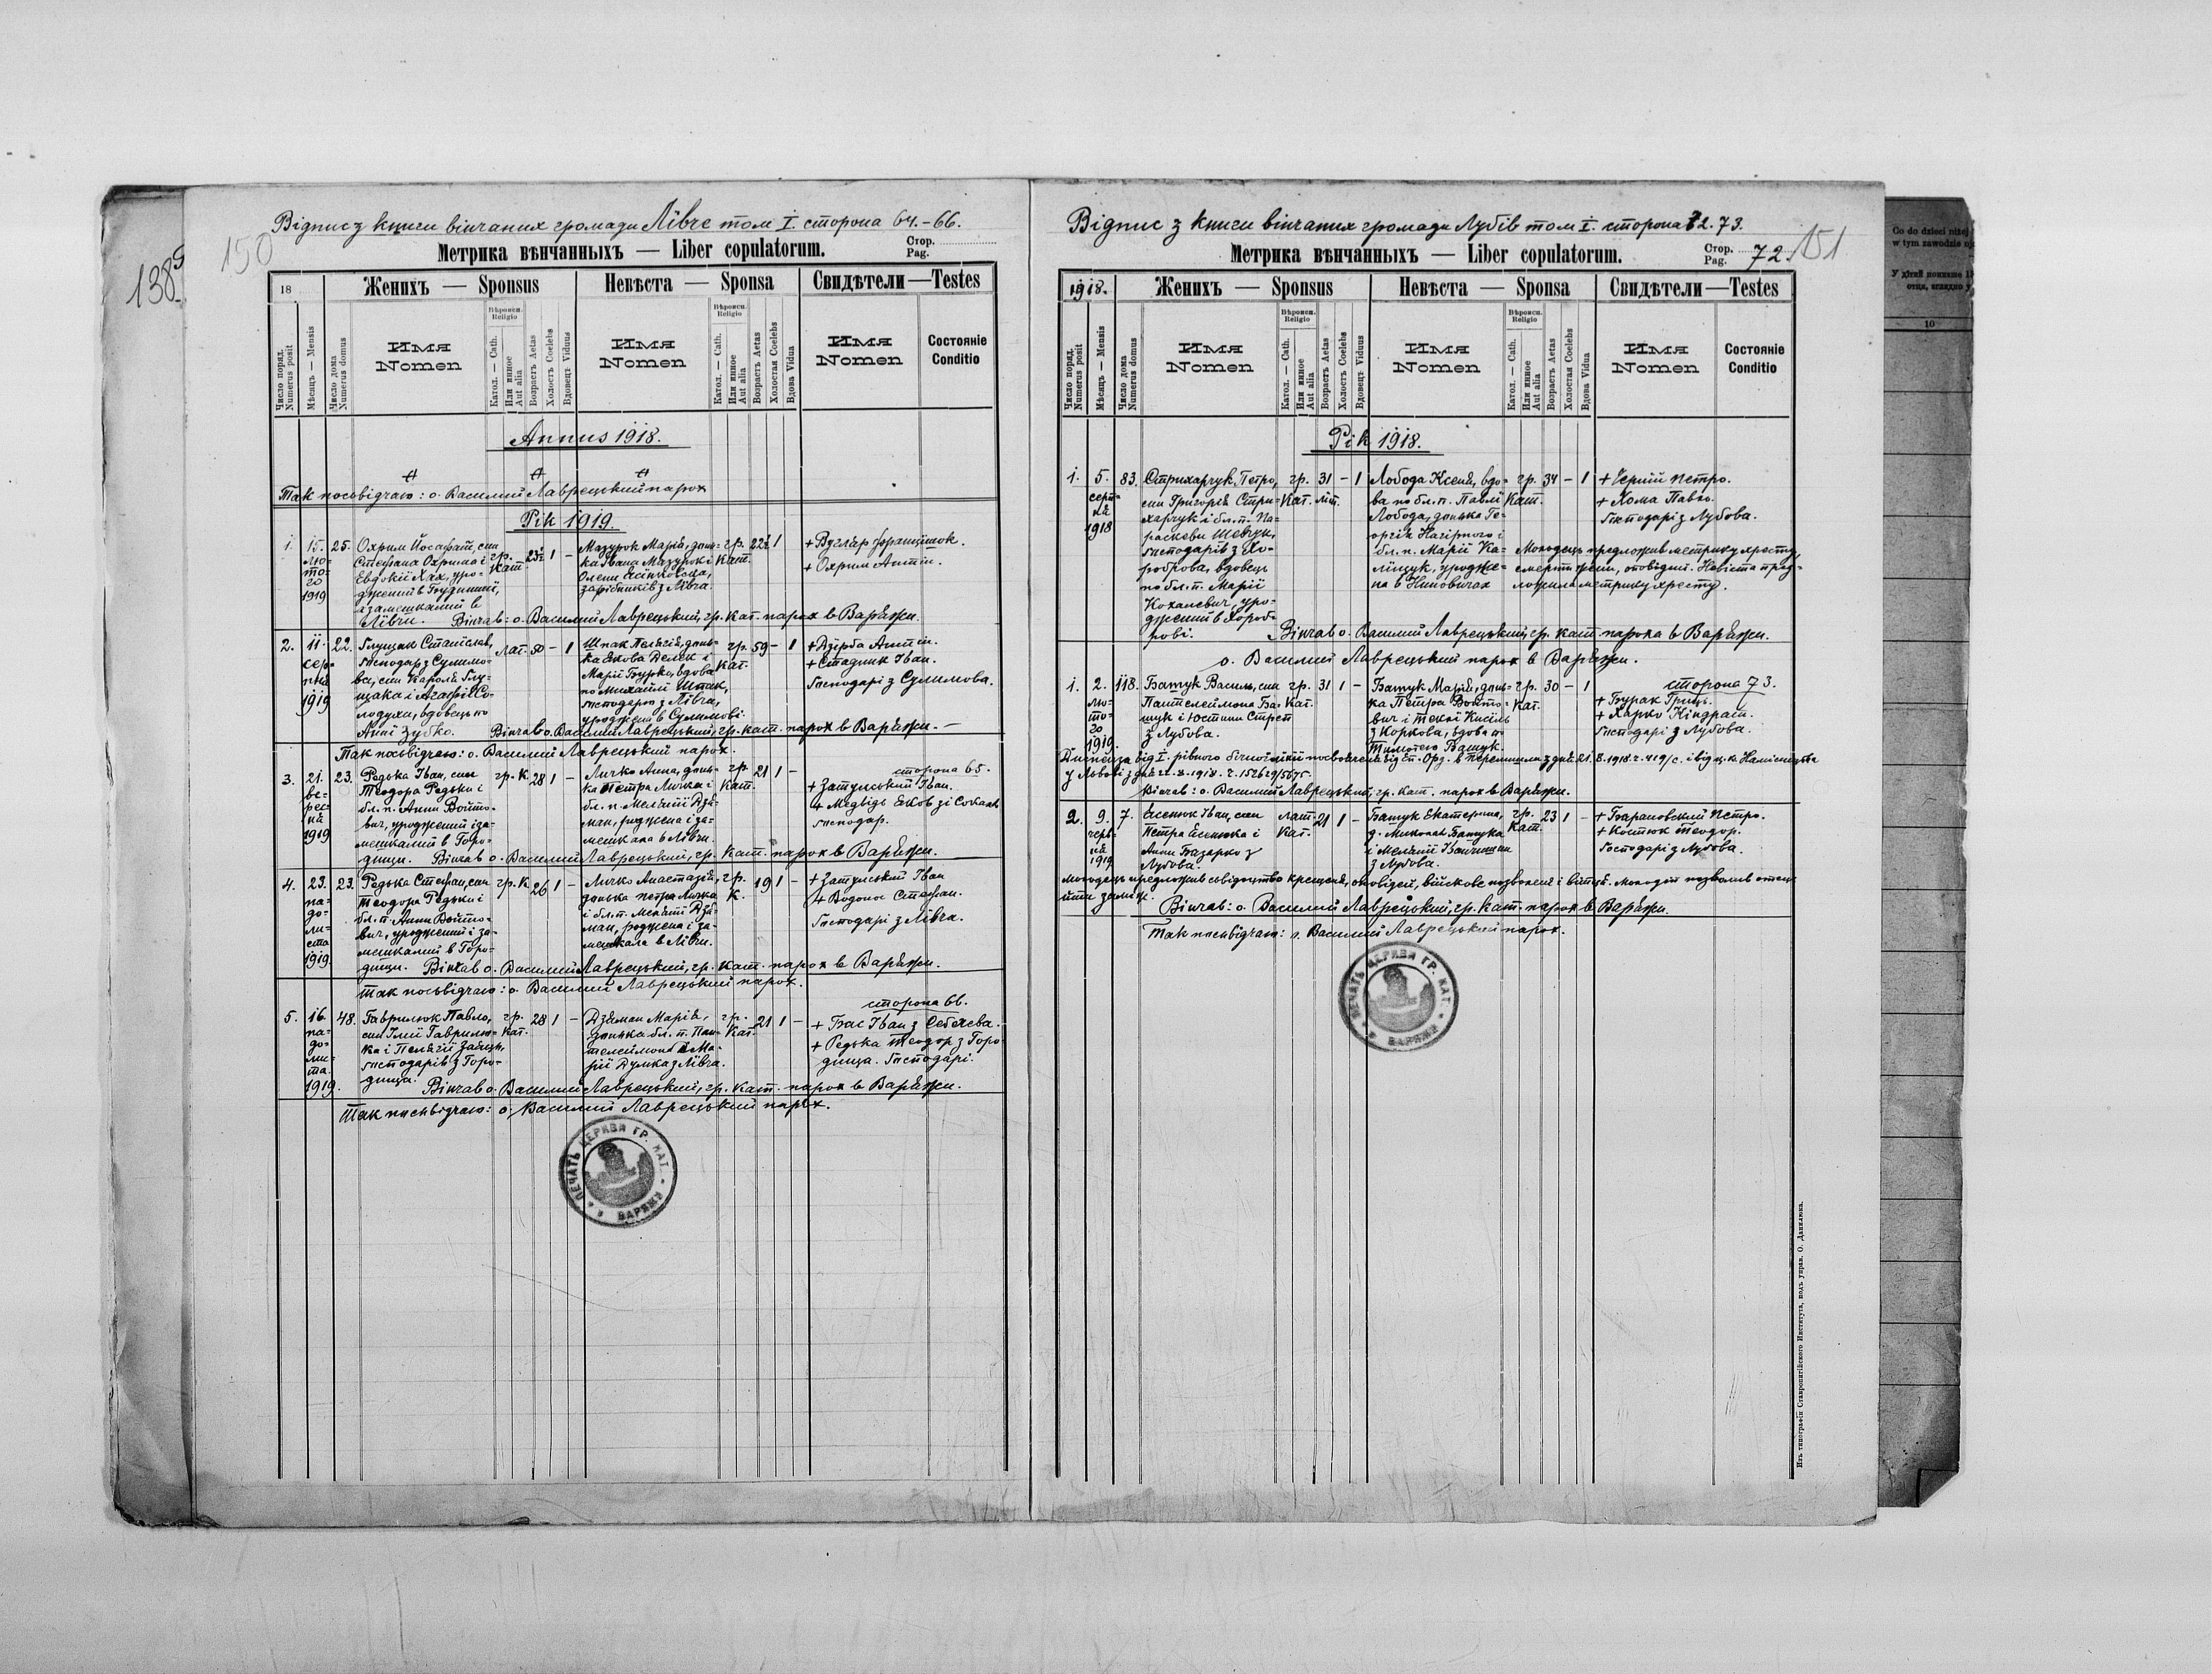 138⁹
150
Відпис з книги вінчаних громади Лівче том I. сторона 64.-66.
Метрика вѣнчанныхъ — Liber copulatorum.
Стор.
Pag.
18
Женихъ — Sponsus
Невѣста — Sponsa
Свидѣтели—Testes
Число поряд.
Numerus posit
Мѣсяцъ — Mensis
Число дома
Numerus domus
Имя
Nomen
Вѣроисп.
Religio
Катол. — Cath.
Или иное
Aut alia
Возрастъ Aetas
Холостъ Coelebs
Вдовецъ Viduus
Имя
Nomen
Вѣроисп.
Religio
Катол. — Cath.
Или иное
Aut alia
Возрастъ Aetas
Холостая Coelebs
Вдова Vidua
Имя
Nomen
Состояніе
Conditio
Annus 1918.
Так посьвідчаю: о. Василий Лаврецький парох
Рік 1919.
1. 15. лютого 1919 25.
Охрим Йосафат, син
Стефана Охрима і
Евдокії Хах, уро-
замешкалий в
Лівчи.
гр. Кат. 23½ 1 –
Мазурок Марія, донь-
ка Івана Мазурок і
Олени
зарібників з Лівча.
гр. Кат. 22½ 1
+ Вугляр Францішок.
+ Охрим Антін.
Вінчав: о. Василий Лаврецький, гр. кат. парох в Варяжи.
2. 11. серпня 1919 22.
Глущак Станіслав,
господар з Сулимо-
ва, син Кароля Глу-
щака і Агафії Со-
лодуха, вдовець по
Анні Зубко.
лат. 50 – 1
Шпак Пелягія, донь-
ка Якова Делек і
Марії Бурко, вдова
по Михайлі Шпак,
господарю з Лівча,
уроджена в Сулимові.
гр. Кат. 59 – 1
+ Дзерба Антін.
+ Стадник Іван.
Господарі з Сулимова.
Вінчав о. Василий Лаврецький, гр. кат. парох в Варяжи. –
Так посьвідчаю: о. Василий Лаврецький парох.
сторона 65.
3. 21. вересня 1919 23.
Редька Іван, син
Теодора Редьки і
бл. п. Анни Войто-
вич, уроджений і за-
мешкалий в Горо-
дищи.
гр. К. 28 1 –
Личко Анна, донь-
ка Петра Личка і
бл. п. Мелянії Дзя-
ман, роджена і за-
мешкала в Лівчи.
гр. Кат. 21 1 –
+ Затульський Іван.
+ Медвідь Яков зі Сокаля
господар.
Вінчав о. Василий Лаврецький, гр. кат. парох в Варяжи.
4. 23. падолиста 1919 23.
Редька Стефан, син
Теодора Редьки і
бл. п. Анни Войто-
вич, уроджений і за-
мешкалий в Горо-
дищи.
гр. К. 26 1 –
Личко Анастазія,
донька Петра Личка
і бл. п. Мелянії Дзя-
ман, роджена і за-
мешкала в Лівчи.
гр. К. 19 1 –
+ Затульський Іван
+ Водонос Стефан.
Господарі з Лівча.
Вінчав о. Василий Лаврецький, гр. кат. парох в Варяжи.
Так посьвідчаю: о. Василий Лаврецький парох.
сторона 66.
5. 16. падолиста. 1919. 48.
Гаврилюк Павло,
син Ілії Гаврилю-
ка і Пелягії Заяць,
господарів з Горо-
дища.
гр. Кат. 28 1 –
Дзяман Марія,
донька бл. п. Пан-
телеймона і Ма-
рії Думка з Лівча.
гр. Кат. 21 1 –
+ Бас Іван з Себечева.
+ Редька Теодор з Горо-
дища. Господарі.
Вінчав о. Василий Лаврецький, гр. кат. парох в Варяжи.
Так посьвідчаю: о. Василий Лаврецький парох.
ПЕЧАТЬ ЦЕРКВА ГР. КАТ. ВАРЯЖИ
Відпис з книги вінчаних громади Лубів том I. сторона 72. 73.
Метрика вѣнчанныхъ — Liber copulatorum.
Стор.
Pag. 72.
151
1918.
Женихъ — Sponsus
Невѣста — Sponsa
Свидѣтели—Testes
Число поряд.
Numerus posit
Мѣсяцъ — Mensis
Число дома
Numerus domus
Имя
Nomen
Вѣроисп.
Religio
Катол. — Cath.
Или иное
Aut alia
Возрастъ Aetas
Холостъ Coelebs
Вдовецъ Viduus
Имя
Nomen
Вѣроисп.
Religio
Катол. — Cath.
Или иное
Aut alia
Возрастъ Aetas
Холостая Coelebs
Вдова Vidua
Имя
Nomen
Состояніе
Conditio
Рік 1918.
1. 5. серпня 1918 83.
Стрихарчук, Петро,
син Григорія Стри-
харчук і бл. п. Па-
раскеви Шевчук,
господарів з Хо-
роброва, вдовець
по бл. п. Марії
Коханевич, уро-
джений в Хороб-
рові.
гр. Кат. 31 літ. – 1
Лобода Ксеня, вдо-
ва по бл. п. Павлі
Лобода, донька Ге-
оргія Нагірного і
бл. п. Марії Ка-
ліщук, уродже-
на в Ниновичах
гр. Кат. 34 – 1
+ Черній Петро.
+ Хома Павло.
Господарі з Лубова.
Молодець предложив метрику хресту,
смерти жени, оповідий. Невіста пред-
ложила метрику хресту.
Вінчав о. Василий Лаврецький, гр. кат. пароха в Варяжи.
о. Василий Лаврецький парох в Варяжи.
сторона 73.
1. 2. лютого 1919. 118.
Батук Василь, син
Пантелеймона Ба-
тук і Юстини Стрет
з Лубова.
гр. Кат. 31 1 –
Батук Марія, донь-
ка Петра Войто-
вич і Теклі Кисіль
з Коркова, вдова по
Тимотею Батук.
гр. Кат. 30 – 1
+ Бурак Гриць.
+ Харко Кіндрат.
Господарі з Лубова.
Вінчав: о. Василий Лаврецький, гр. кат. парох в Варяжи.
2. 9. червня 1919 7.
Есенюк Іван, син
Петра Есенюка і
Анни Базарко з
Лубова.
лат. Кат. 21 1 –
Батук Екатерина,
д. Миколая Батука
і Мелянії
з Лубова.
гр. Кат. 23 1 –
+ Барановский Петро.
+ Костюк Теодор.
Господарі з Лубова.
Вінчав: о. Василий Лаврецький, гр. кат. парох в Варяжи.
Так посьвідчаю: о. Василий Лаврецький парох.
ПЕЧАТЬ ЦЕРКВА ГР. КАТ. ВАРЯЖИ
Изъ типографіи Ставропигійского Института, подъ управ. О. Данилюка.
Co do dzieci niżej
10